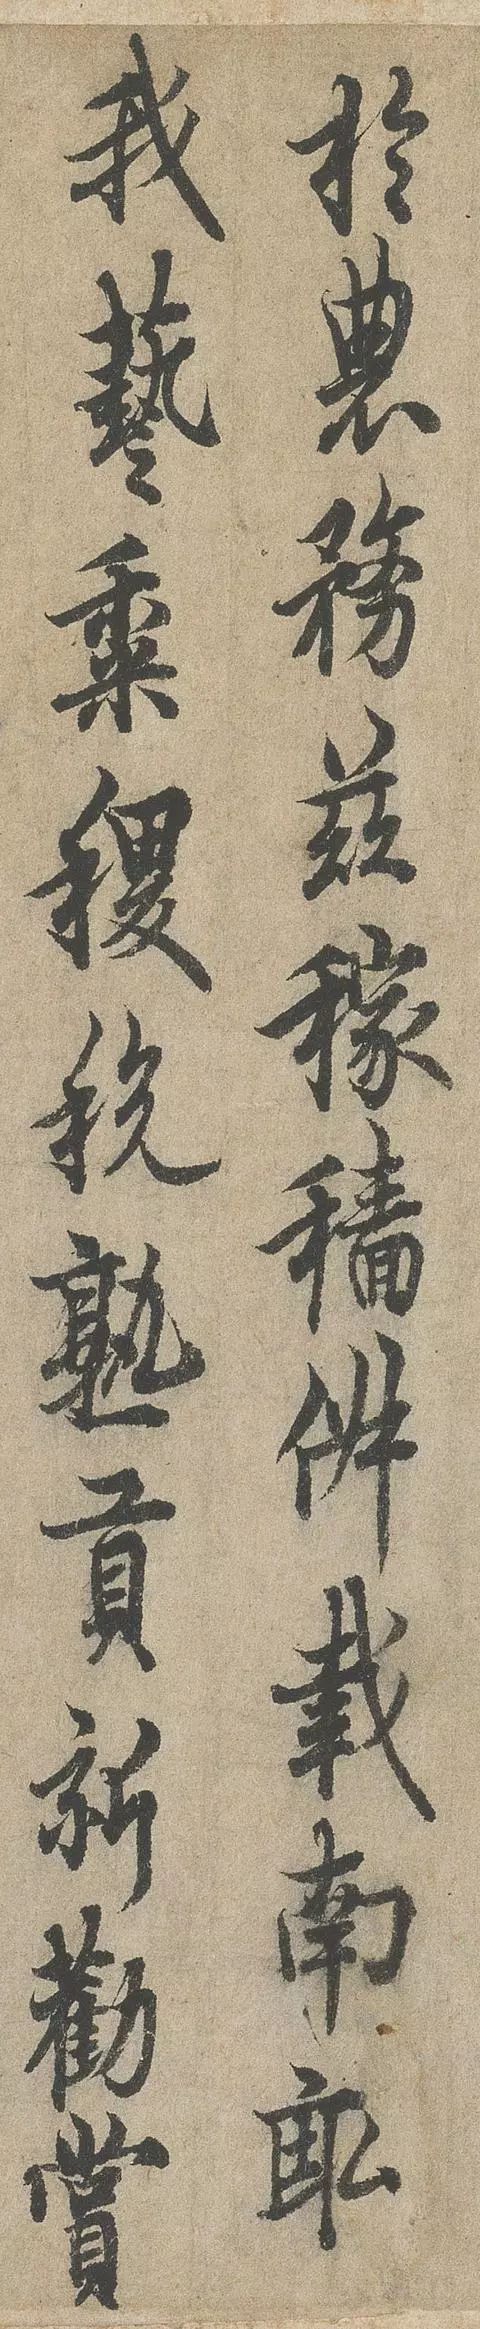 於農務茲稼穡俶載南畝
我藝黍稷稅熟貢新勸賞